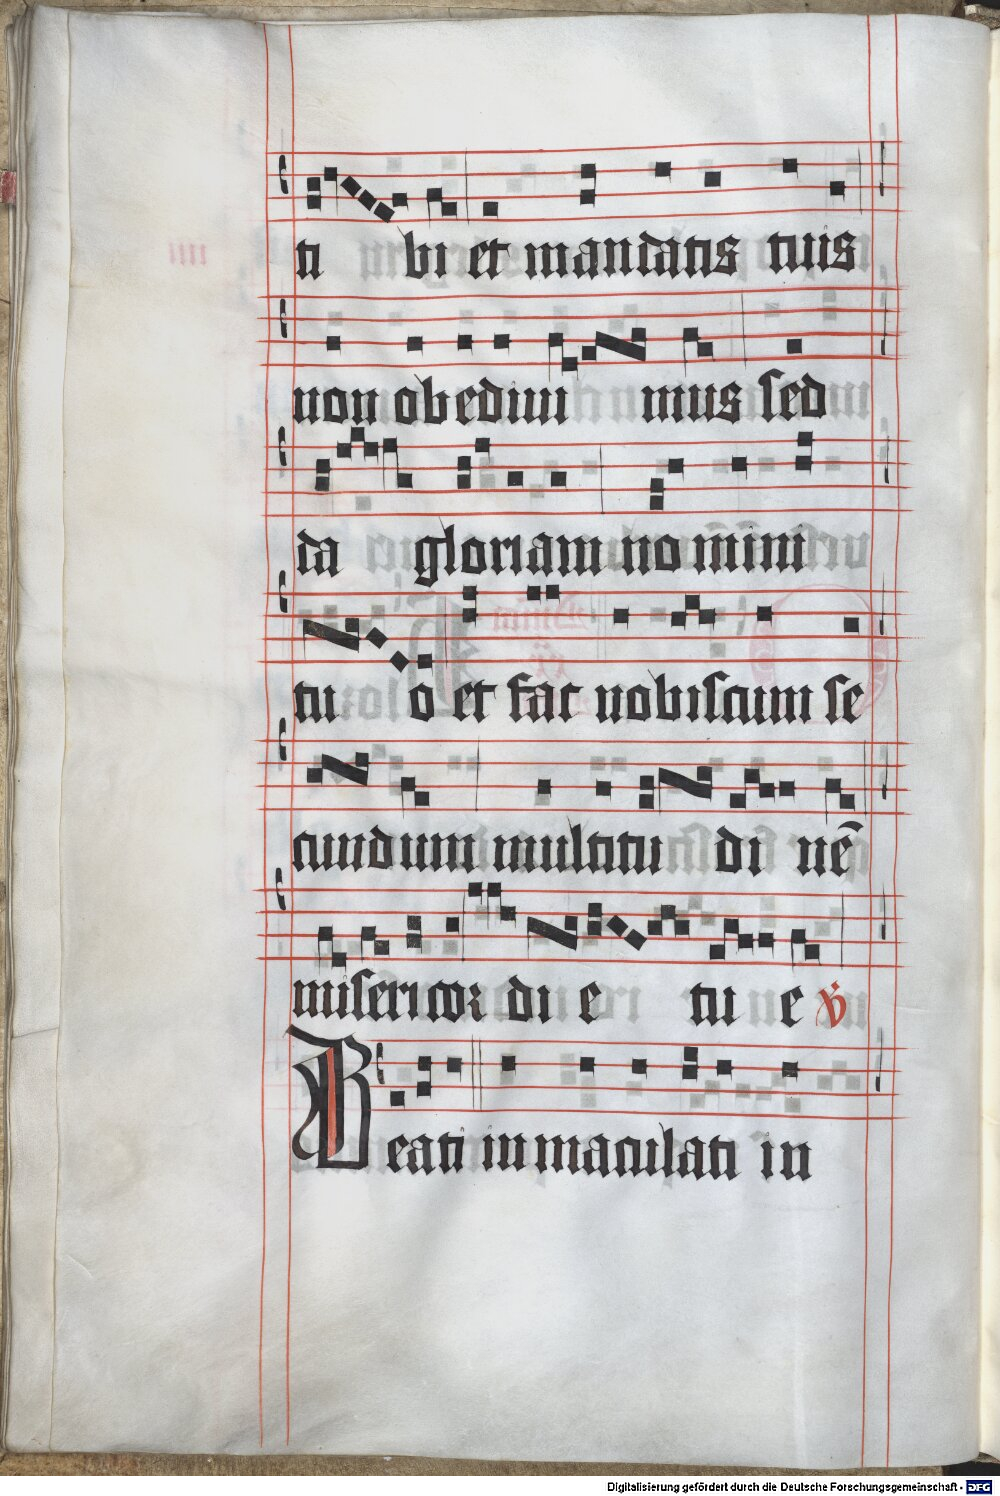 ti bi et mandatis tuis
non obediui mus sed
da gloriam no mini
tu o et fac nobiscum se
cundum multitu di nē
misericor di e tu e ℣
Beati inmaculati in
Digitalisierung gefördert durch die Deutsche Forschungsgemeinschaft - DFG